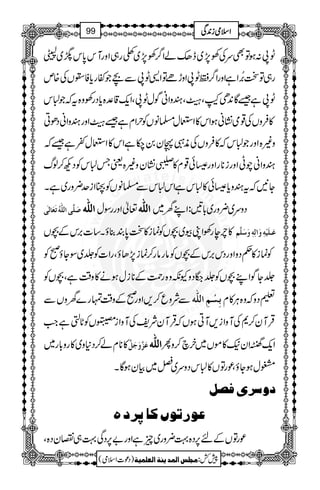 اسلامی زندگی 99
ٹوپی نہ ہو تو یہ بھی سر کی کھوپڑی ڈھک لے اگر کھوپڑی کھلی رہی اور آس پاس پگڑی لپٹی
رہی تو سخت بُرا ہے اور اگر فقط ٹوپی اوڑھے تو ایسی ٹوپی سے بچے جو کفار یا فاسقوں کی خاص
ٹوپی ہے جیسے گاندھی کیپ، ہیٹ، ہندوانی گول ٹوپی، یہ قاعدہ یاد رکھو وہ یہ کہ جو لباس
کافروں کی قومی نشانی ہو اس کا استعمال مسلمانوں کو حرام ہے جیسے ہیٹ اور ہندوانی دھوتی
وغیرہ اور جو لباس کہ کافروں کی مذہبی پہچان بن چکا ہے اس کا استعمال کفر ہے جیسے کہ
ہندوانی چوٹی اور زنار اور عیسائی قوم کا صلیبی نشان وغیرہ یعنی جس لباس کو دیکھ کر لوگ
جانیں کہ یہ ہندو یا عیسائی کا لباس ہے اس لباس سے مسلمانوں کو بچنا از حد ضروری ہے۔
دوسری ضروری باتیں: اپنے گھر میں اللہ تعالیٰ اور رسول اللہ صَلَّی اللہُ تَعَالٰی
عَلَیْہِ وَاٰلِہٖ وَسَلَّم کا چرچا رکھو اپنی بیوی بچوں کو نماز کا سخت پابند بناؤ۔ سات برس کے بچوں
کو نماز کا حکم دو اور دس برس کے بچوں کو مار مار کر نماز پڑھاؤ، رات کو جلدی سو جاؤ صبح کو
جلد جاگو اپنے بچوں کو جلد جگا دو کیونکہ وہ رحمت کے نازل ہونے کا وقت ہے، بچوں کو
تعلیم دو کہ وہ ہر کام بِسْمِ اللہ سے شروع کریں اور صبح کے وقت تمہارے گھروں سے
قرآن کریم کی آوازیں آتی ہوں کہ قرآن شریف کی آواز مصیبتوں کو ٹالتی ہے جب
ایک گھنٹہ ان نیک کاموں میں خرچ کر و پھر اللہ عَزَّوَجَلَّ کا نام لے کر دنیاوی کاروبار میں
مشغول ہو جاؤ، عورتوں کا لباس دوسری فصل میں بیان ہوگا۔
دوسری فصل
عورتوں کا پردہ
عورتوں کے لئے پردہ بہت ضروری چیز ہے اور بے پردگی بہت ہی نقصان دہ،
پیش کش: مجلس المدینۃ العلمیۃ (دعوت اسلامی)